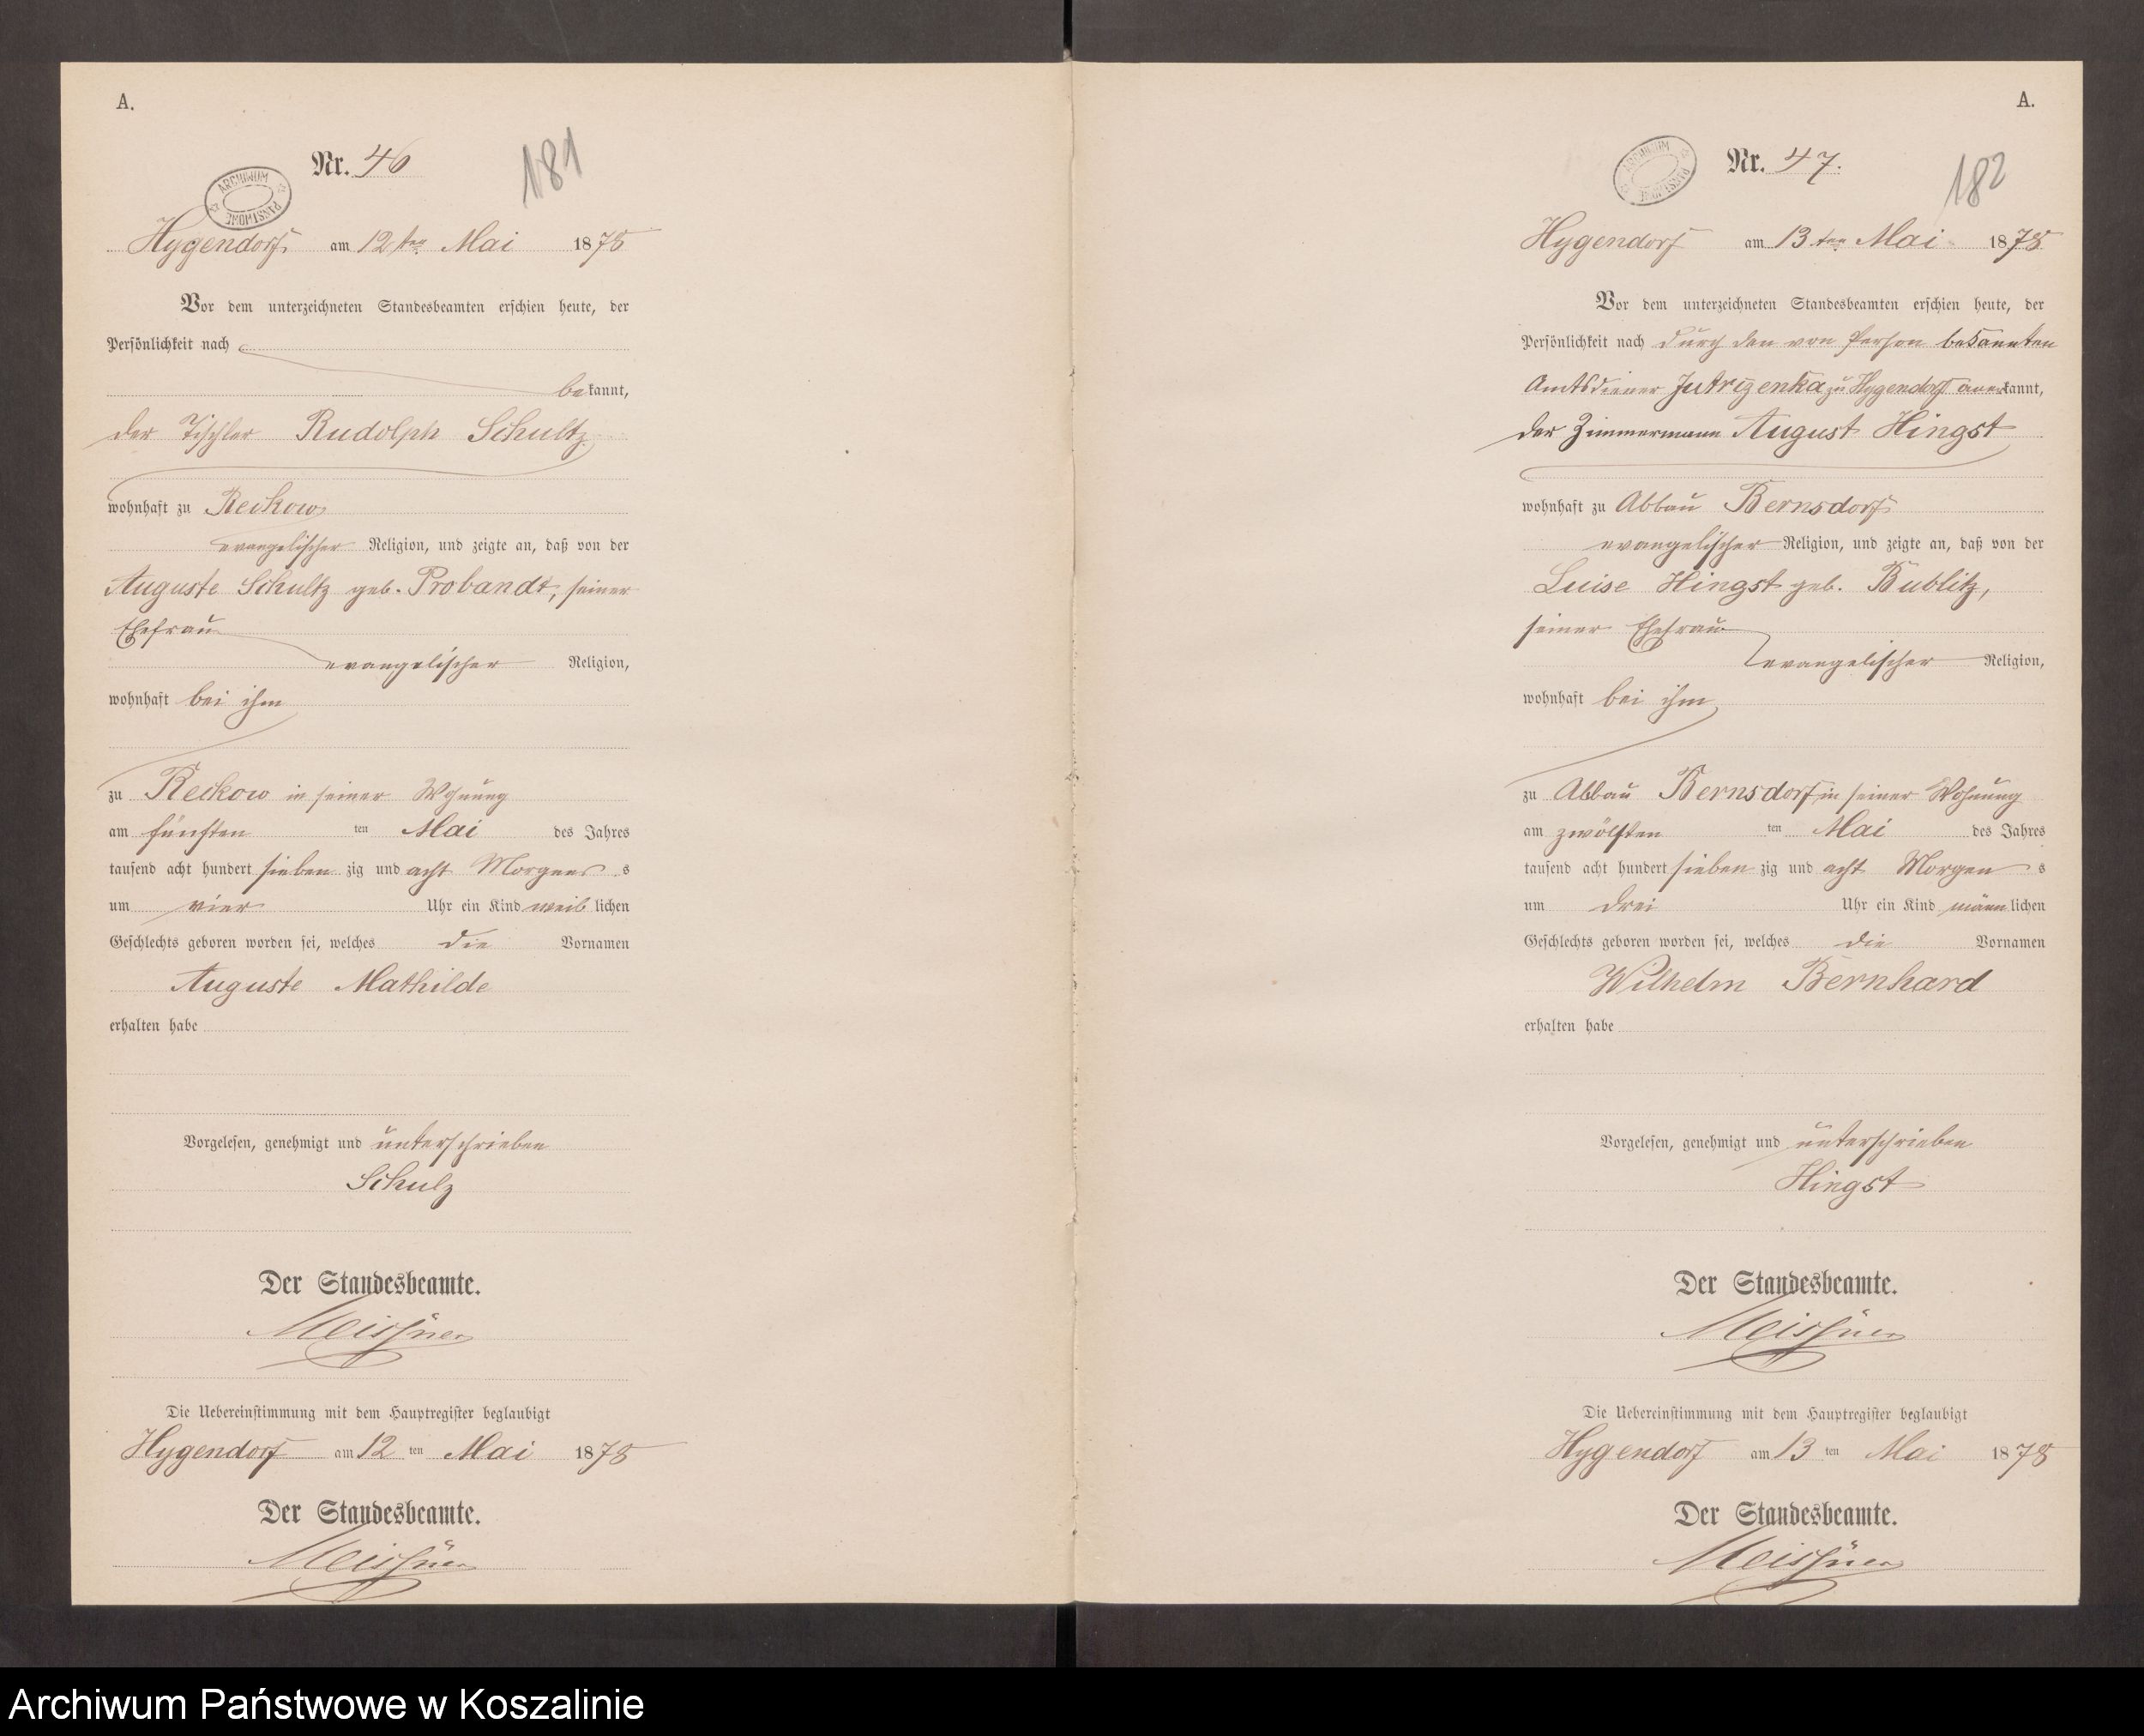 A.
Nr. 46
181
ARCHIWUM PAŃSTWOWE
Hygendorf am 12ten Mai 1878
Vor dem unterzeichneten Standesbeamten erschien heute, der
Persönlichkeit nach
bekannt,
der Tischler Rudolph Schultz
wohnhaft zu Reckow
evangelischer Religion, und zeigte an, daß von der
Auguste Schultz geb. Probandt, seiner
Ehefrau
evangelischer Religion,
wohnhaft bei ihm
zu Reckow in seiner Wohnung
am fünften ten Mai des Jahres
tausend acht hundert sieben zig und acht Morgens s
um vier Uhr ein Kind weib lichen
Geschlechts geboren worden sei, welches die Vornamen
Auguste Mathilde
erhalten habe
Vorgelesen, genehmigt und unterschrieben
Schulz
Der Standesbeamte.
Meissner
Die Uebereinstimmung mit dem Hauptregister beglaubigt
Hygendorf am 12 ten Mai 1878
Der Standesbeamte.
Meissner
A.
Nr. 47.
182
ARCHIWUM PAŃSTWOWE
Hygendorf am 13ten Mai 1878
Vor dem unterzeichneten Standesbeamten erschien heute, der
Persönlichkeit nach durch den von Person bekannten
Amtsdiener Jutrizenka zu Hygendorf anerkannt,
der Zimmermann August Hingst
wohnhaft zu Abbau Bernsdorf
evangelischer Religion, und zeigte an, daß von der
Luise Hingst geb. Bublitz,
seiner Ehefrau
evangelischer Religion,
wohnhaft bei ihm
zu Abbau Bernsdorf, in seiner Wohnung
am zwölften ten Mai des Jahres
tausend acht hundert sieben zig und acht Morgen s
um drei Uhr ein Kind männ lichen
Geschlechts geboren worden sei, welches die Vornamen
Wilhelm Bernhard
erhalten habe
Vorgelesen, genehmigt und unterschrieben
Hingst
Der Standesbeamte.
Meissner
Die Uebereinstimmung mit dem Hauptregister beglaubigt
Hygendorf am 13 ten Mai 1878
Der Standesbeamte.
Meissner
Archiwum Państwowe w Koszalinie